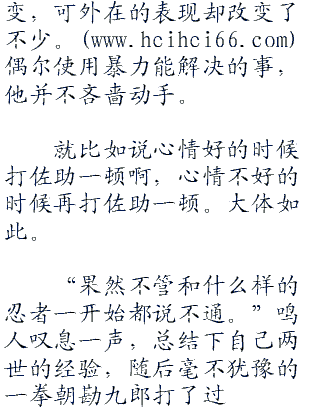 变，可外在的表现却改变了
不少。(www.hcihci66.com)
偶尔使用暴力能解决的事，
他并不吝啬动手。
就比如说心情好的时候
打佐助一顿啊，心情不好的
时候再打佐助一顿。大体如
此。
“果然不管和什么样的
忍者一开始都说不通。”鸣
人叹息一声，总结下自己两
世的经验，随后毫不犹豫的
一拳朝勘九郎打了过